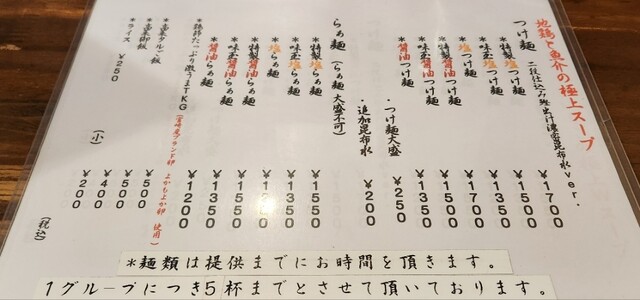 地鶏と魚介の極上スープ
つけ麺 二段仕込み鶏出汁濃密昆布水ver.
*特製塩つけ麺 ¥1700
*味玉塩つけ麺 ¥1500
*塩つけ麺 ¥1350
*特製醤油つけ麺 ¥1700
*味玉醤油つけ麺 ¥1500
*醤油つけ麺 ¥1350
・つけ麺大盛 ¥250
・追加昆布水 ¥200
らぁ麺(らぁ麺大盛不可)
*特製塩らぁ麺 ¥1550
*味玉塩らぁ麺 ¥1350
*塩らぁ麺 ¥1200
*特製醤油らぁ麺 ¥1550
*味玉醤油らぁ麺 ¥1350
*醤油らぁ麺 ¥1200
たっぷり激うまTKG(宮崎産ブランド卵 よかもよか卵 使用) ¥500
*高菜タルタル飯 ¥500
*高菜御飯 ¥400
*ライス ¥250 (小) ¥200
(税込)
*麺類は提供までにお時間を頂きます。
1グループにつき5杯までとさせて頂いております。